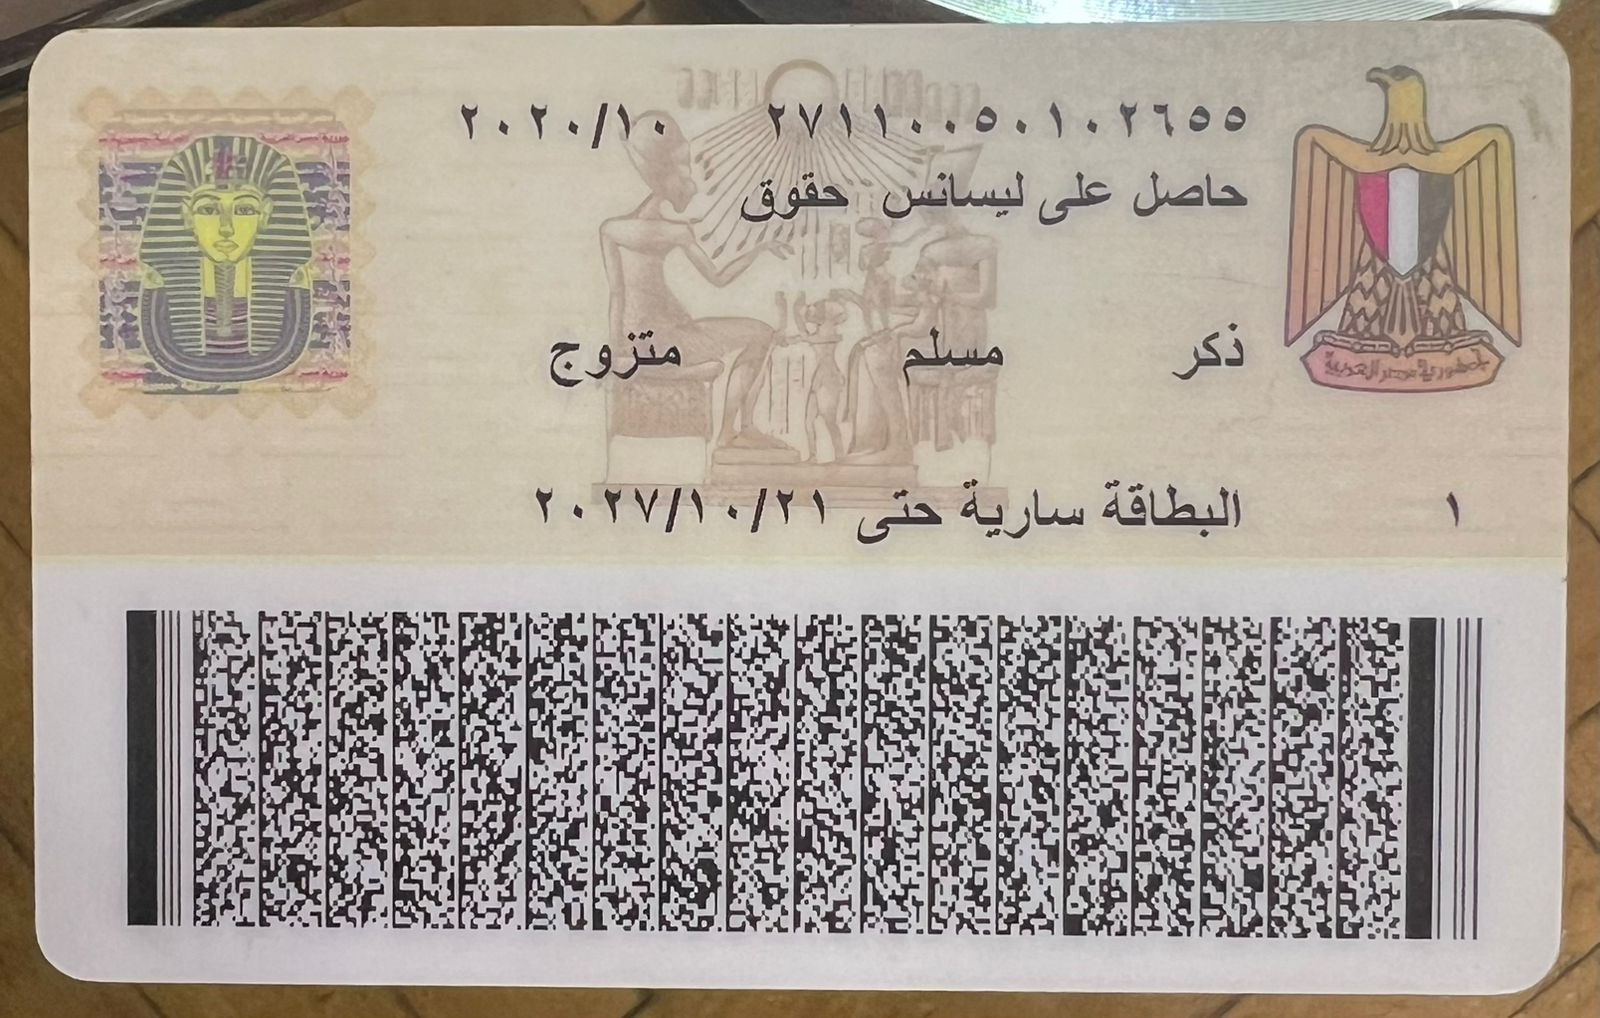 ٢٧١١٠٠٥٠١٠٢٦٥٥ ٢٠٢٠/١٠
حاصل على ليسانس حقوق
ذكر مسلم متزوج
١ البطاقة سارية حتى ٢٠٢٧/١٠/٢١
جمهورية مصر العربية